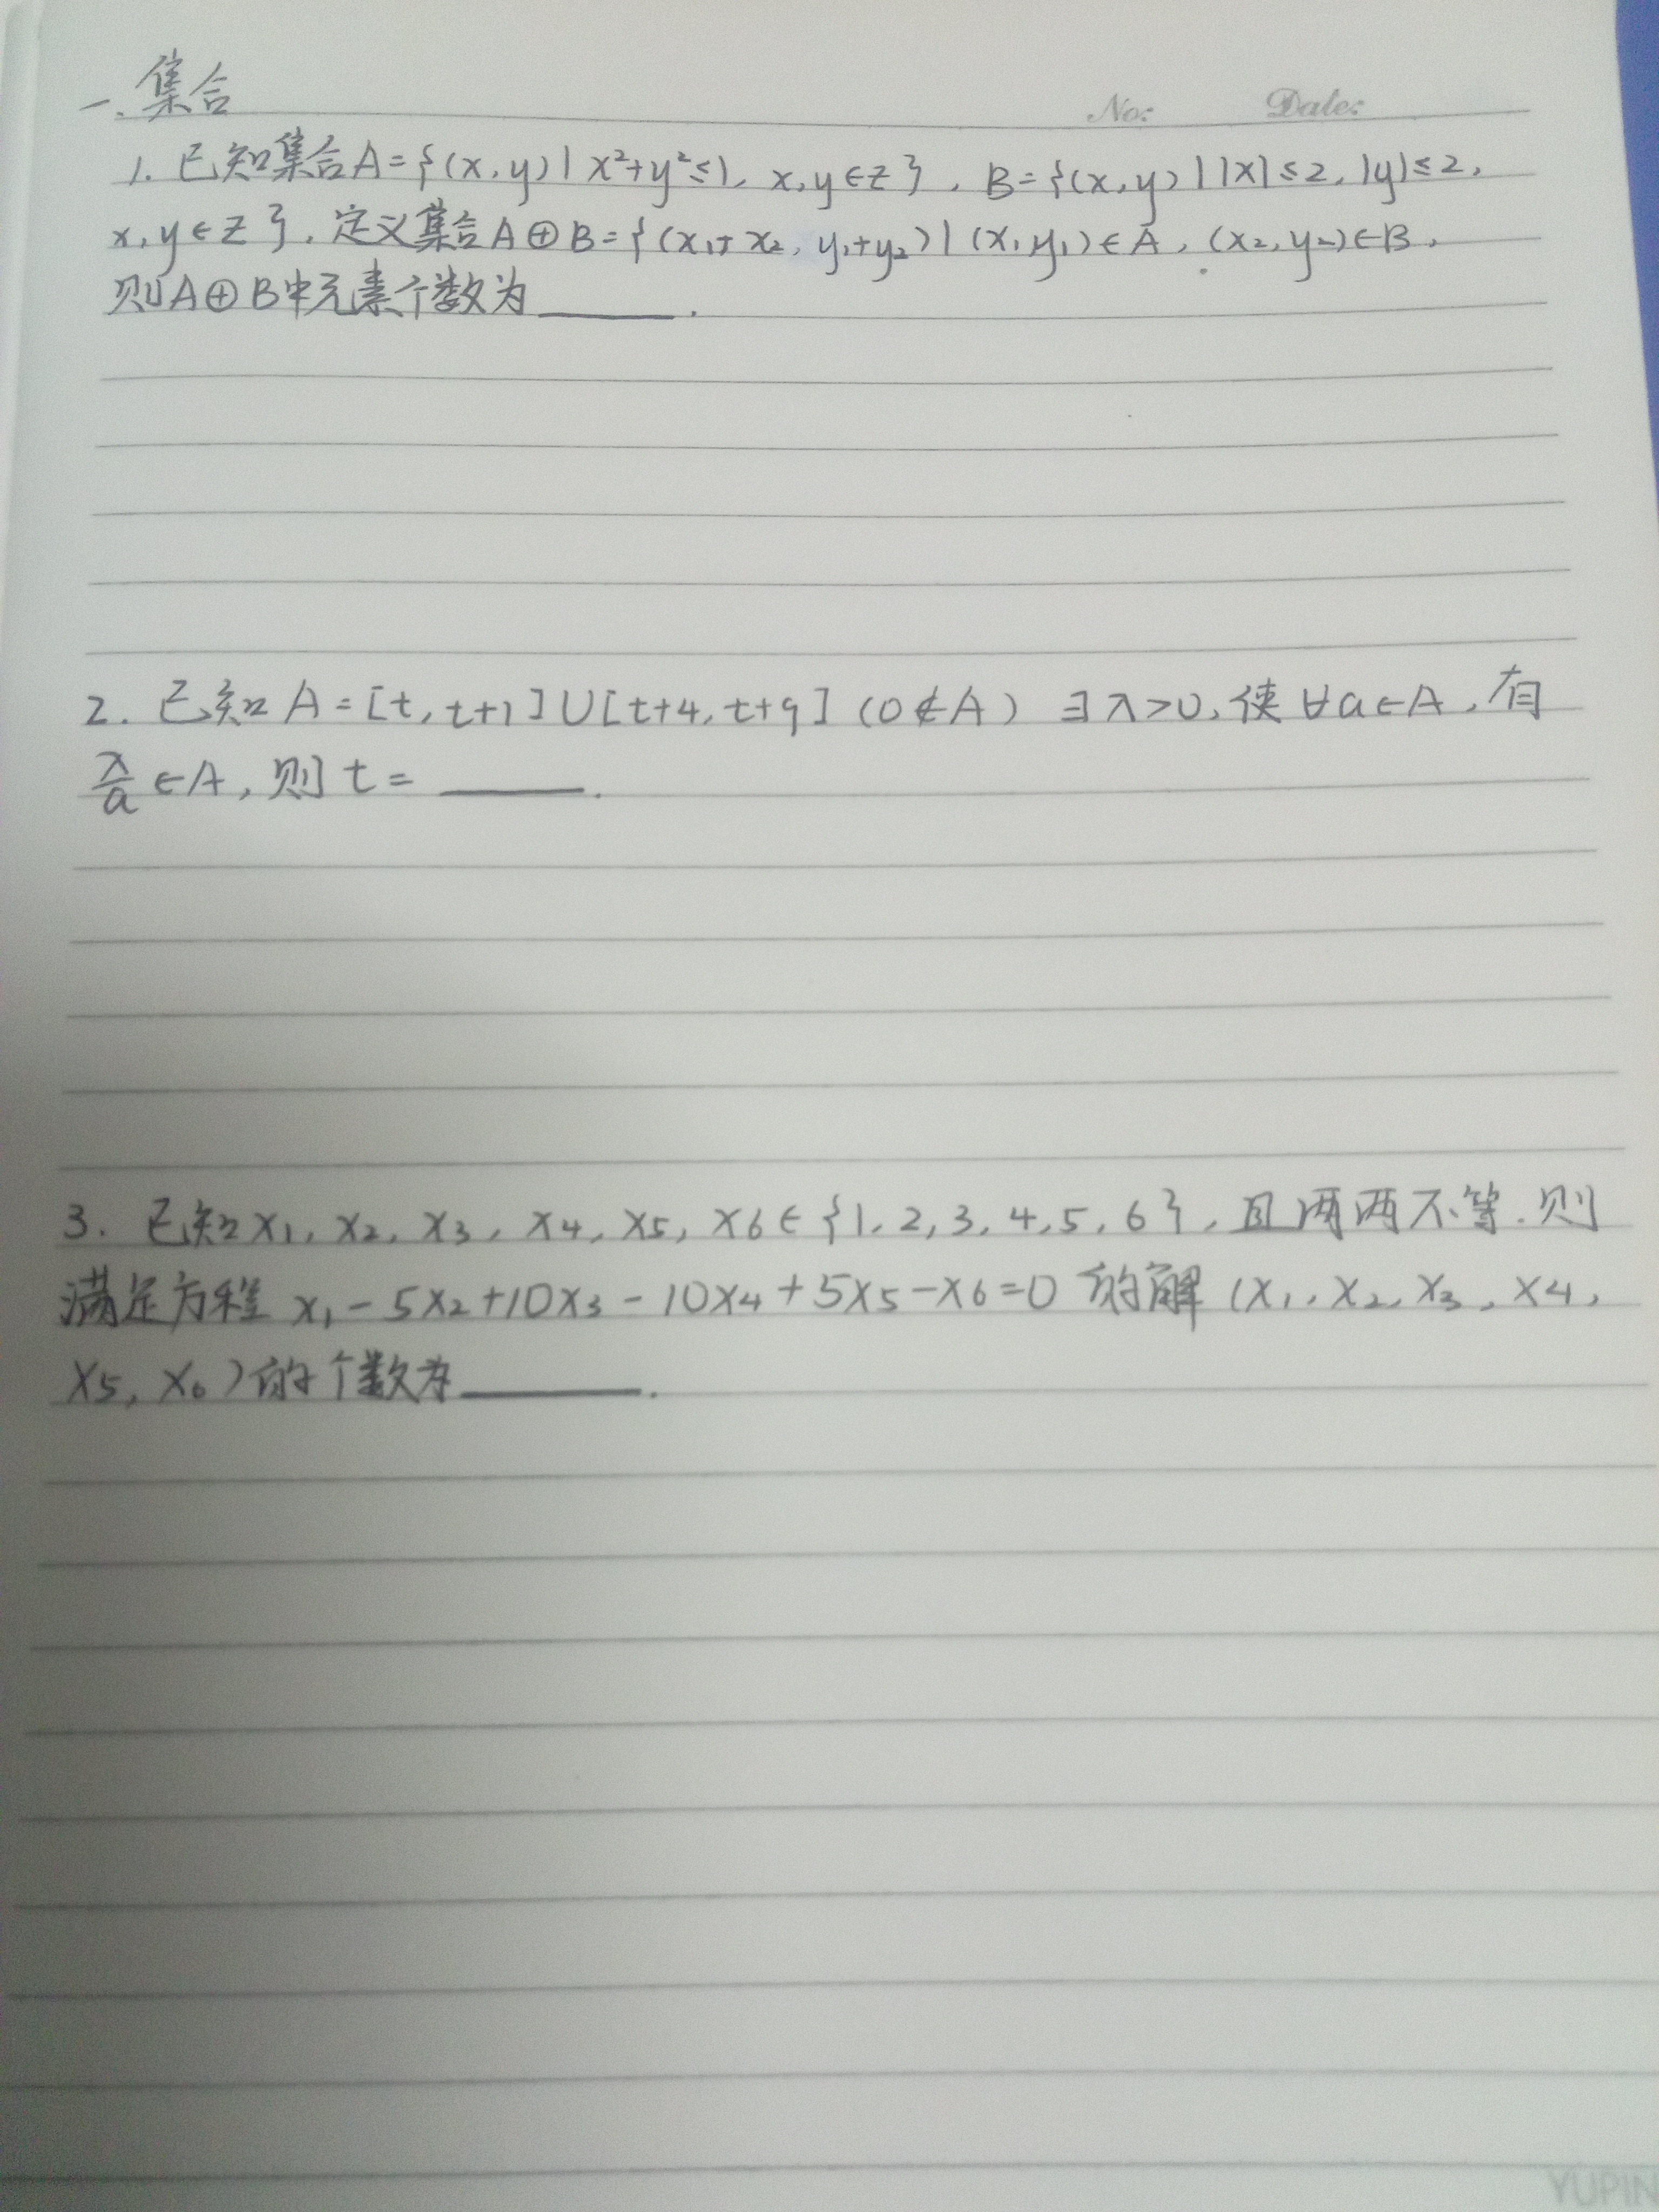 一.集合
No: Date:
1. 已知集合A={(x,y)|x²+y²≤1, x,y∈Z}, B={(x,y)||x|≤2,|y|≤2,
x,y∈Z}, 定义集合A⊕B={(x₁+x₂, y₁+y₂)|(x₁,y₁)∈A, (x₂,y₂)∈B,
则A⊕B中元素个数为______.
2. 已知A=[t,t+1]∪[t+4,t+9](0∉A) ∃λ>0,使∀a∈A,有
λ/a∈A,则t=______.
3. 已知x₁,x₂,x₃,x₄,x₅,x₆∈{1,2,3,4,5,6},且两两不等.则
满足方程 x₁-5x₂+10x₃-10x₄+5x₅-x₆=0 的解(x₁,x₂,x₃,x₄,
x₅,x₆)的个数为______.
YUPIN